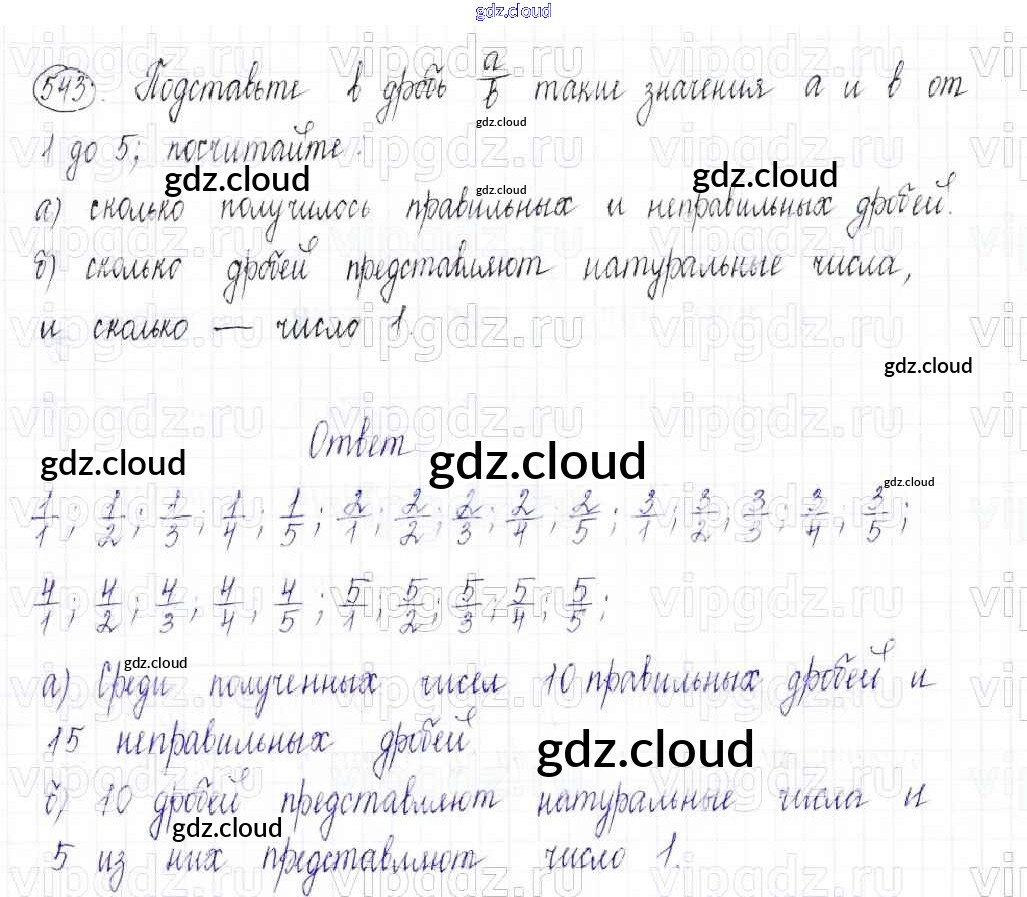 gdz.cloud
543. Подставьте в дробь a/b такие значения a и b от
gdz.cloud
1 до 5; посчитайте:
gdz.cloud gdz.cloud gdz.cloud
а) сколько получилось правильных и неправильных дробей.
б) сколько дробей представляют натуральные числа,
и сколько — число 1.
gdz.cloud
Ответ
gdz.cloud gdz.cloud gdz.cloud
1/1; 1/2; 1/3; 1/4; 1/5; 2/1; 2/2; 2/3; 2/4; 2/5; 3/1; 3/2; 3/3; 3/4; 3/5;
4/1; 4/2; 4/3; 4/4, 4/5; 5/1; 5/2; 5/3; 5/4; 5/5;
gdz.cloud
а) Среди полученных чисел 10 правильных дробей и
15 неправильных дробей
gdz.cloud
б) 10 дробей представляют натуральные числа и
gdz.cloud
5 из них представляют число 1.
vipgdz.ru